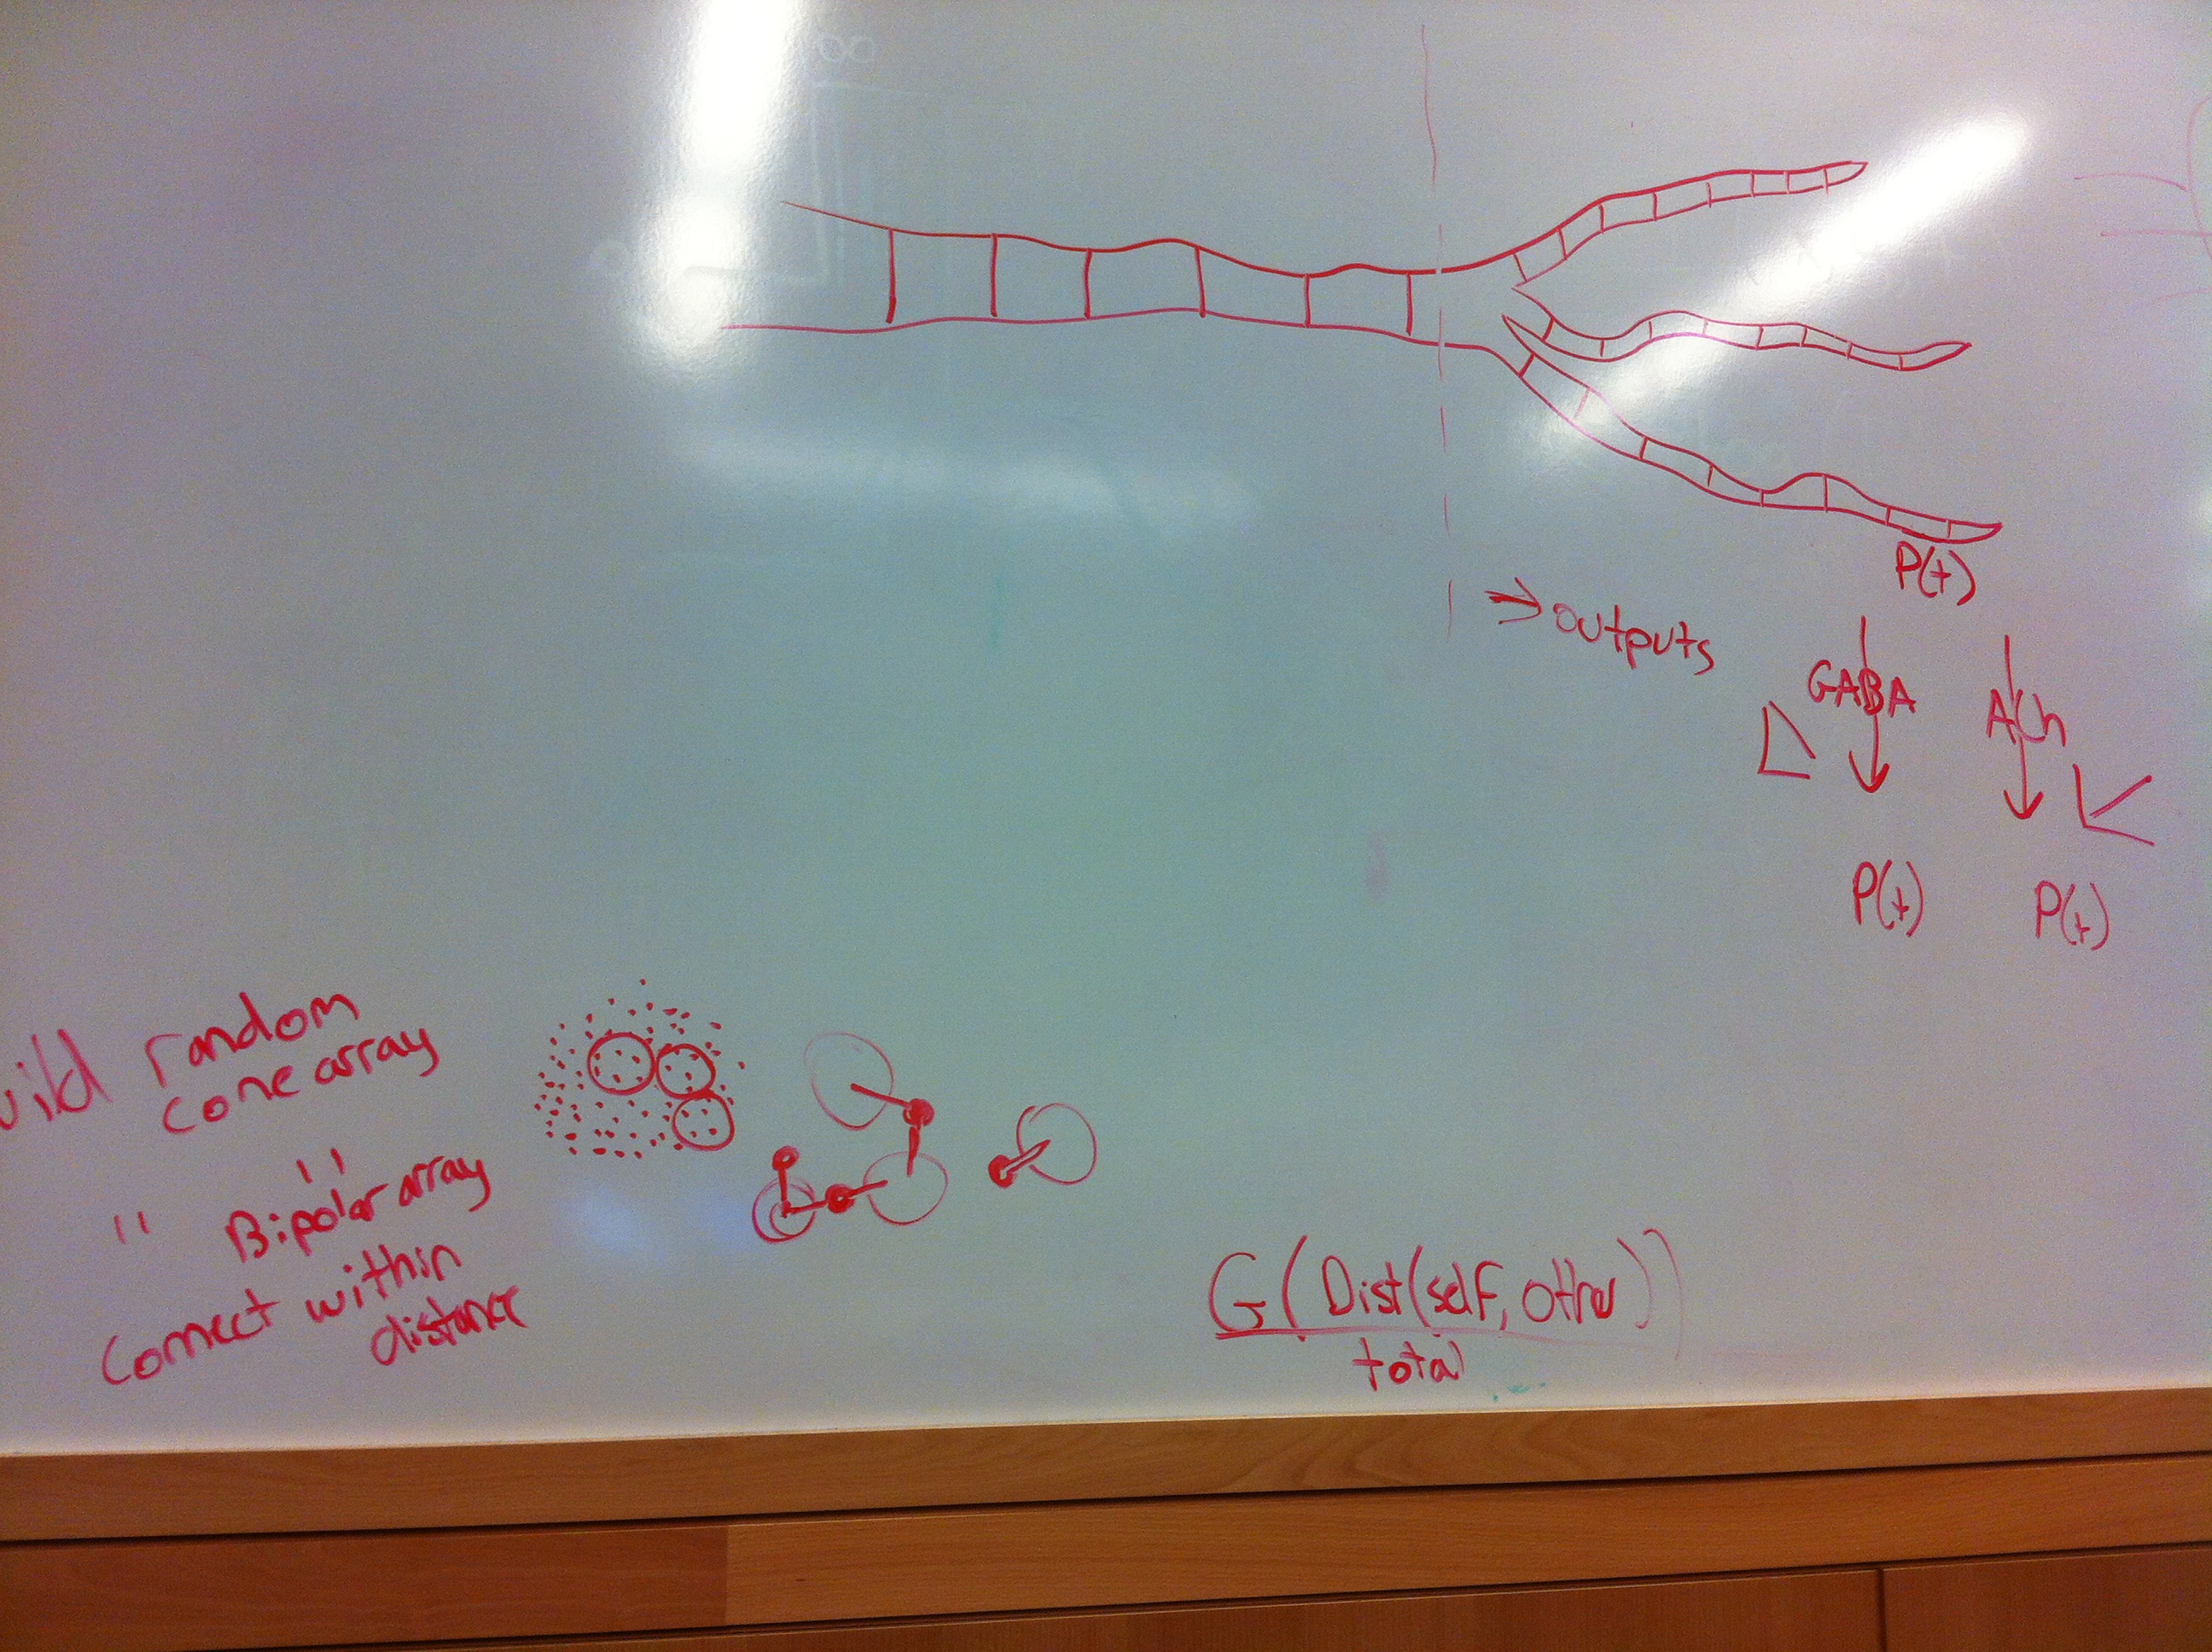 P(t)
→ outputs
GABA ACh
P(t) P(t)
uild random
cone array
" "
Bipolar array
Connect within
distance
G(Dist(self, other))
total